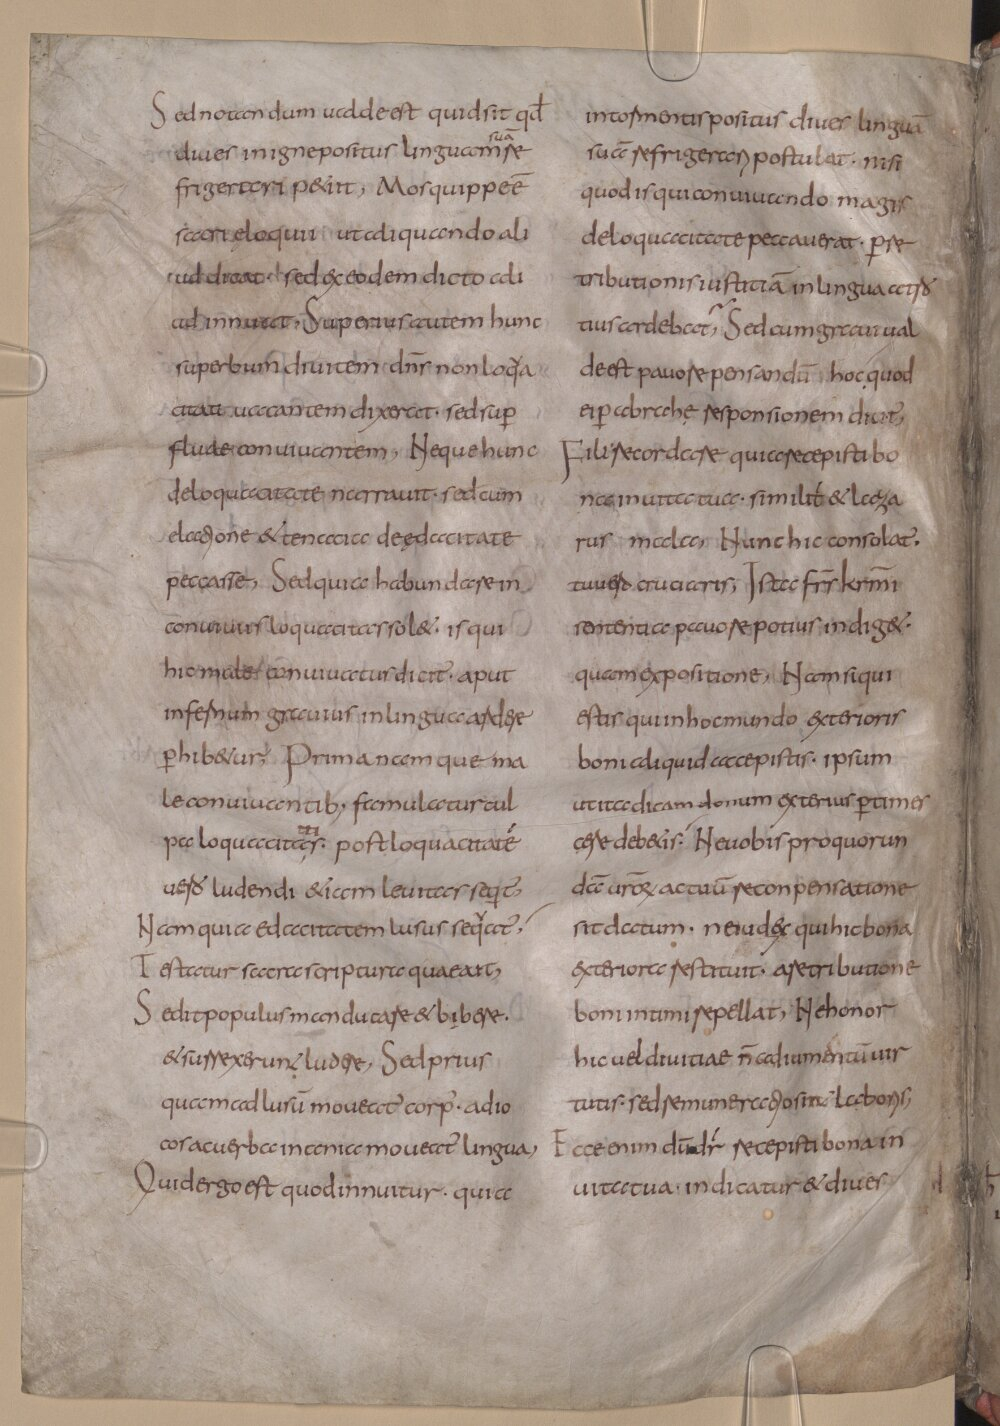 Sed notandum ualde est quid sit qđ
diues in igne positus linguam suā re
frigerari petiit, Mos quippe ē
sacri eloquii ut aliquando ali
ud dicat· sed ex eodem dicto ali
ud innuat, Superius autem hunc
superbum diuitem dn̄s non loqa
citati uacantem dixerat· sed sup̱
flue conuiuantem, Neque hunc
de loquacitate narrauit· sed cum
elatione & tenacia de edacitate
peccasse, Sed quia habundare in
conuiuiis loquacitas sol&· is qui
hic male conuiuatus dicit̄· aput
infernum grauius in lingua ardere
p̱hib&ur, Prima namque ma
le conuiuantib;· famulatur cul
pa loquacitatis· post loquacitatē
uero ludendi &iam leuitas seqit̄,
Nam quia edacitatem lusus seqat̄,
Testatur sacra scriptura quae ait,
Sedit populus manducare & bibere·
& surrexerunt ludere, Sed prius
quam ad lusū moueat̄ corp̱· ad io
cos ac uerba inania moueat̄ lingua,
Quid ergo est quod innuitur· quia
in tormentis positus diues linguā
suā refrigerari postulat· nisi
quod is qui conuiuando magis
de loquacitate peccauerat· p̱ re
tributionis iustitiā in lingua atro
tius ardebat, Sed cum graui ual
de est pauore pensandū hoc quod
ei p̱ abrahę responsionem dicit̄,
Fili recordare quia recepisti bo
na in uita tua· similit̄ & laza
rus mala, Nunc hic consolat̄·
tu uero cruciaris, Ista fr̄s kr̄mi
sententia pauore potius indig&·
quam expositione, Nam si qui
estis qui in hoc mundo exterioris
boni aliquid accepistis· ipsum
ut ita dicam donum exterius p̱times
cere deb&is· Ne uobis pro quorun
dā urōꝝ actuū reconpensatione
sit datum· ne iudex qui hic bona
exteriora restituit· a retributione
boni intimi repellat, Ne honor
hic uel diuitiae n̄ adiumentū uir
tutis· sed remuneratio sint laboris,
Ecce enim dū dr̄ recepisti bona in
uita tua· indicatur & diues